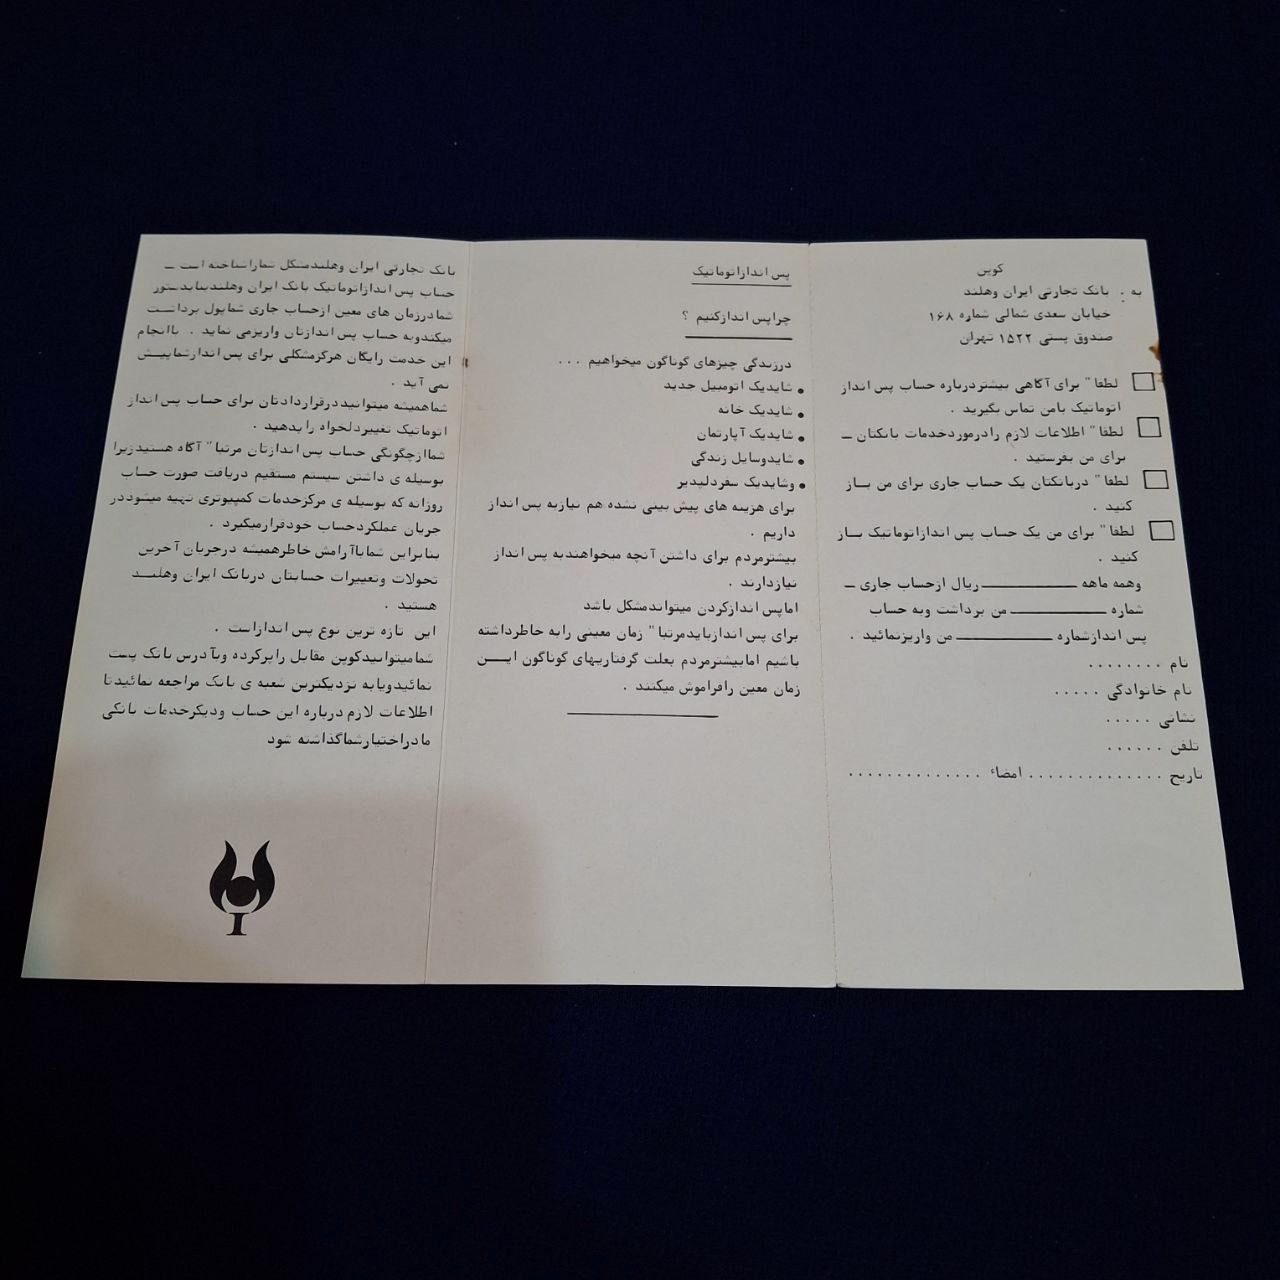 کوپن
به : بانک تجارتی ایران وهلند
خیابان سعدی شمالی شماره ۱۶۸
صندوق پستی ۱۵۲۲ تهران
لطفا" برای آگاهی بیشتردرباره حساب پس انداز
اتوماتیک بامن تماس بگیرید .
لطفا" اطلاعات لازم رادرموردخدمات بانکتان ـ
برای من بفرستید .
لطفا" دربانکتان یک حساب جاری برای من بـاز
کنید .
لطفا" برای من یک حساب پس اندازاتوماتیک بـاز
کنید .
وهمه ماهه ــــــــــ ریال ازحساب جاری ـ
شماره ــــــــــ من برداشت وبه حساب
پس اندازشماره ــــــــــ من واریزنمائید .
نام ........
نام خانوادگی .....
نشانی .....
تلفن ......
تاریخ .............. امضاء ..............
پس اندازاتوماتیک
چراپس اندازکنیم ؟
درزندگی چیزهای گوناگون میخواهیم ...
• شایدیک اتومبیل جدید
• شایدیک خانه
• شایدیک آپارتمان
• شایدوسایل زندگی
• وشایدیک سفردلپذیر
برای هزینه های پیش بینی نشده هم نیازبه پس انداز
داریم .
بیشترمردم برای داشتن آنچه میخواهندبه پس انداز
نیازدارند .
اماپس اندازکردن میتواندمشکل باشد
برای پس اندازبایدمرتبا" زمان معینی رابه خاطرداشته
باشیم امابیشترمردم بعلت گرفتاریهای گوناگون ایـــن
زمان معین رافراموش میکنند .
بانک تجارتی ایران وهلندمشکل شماراشناخته است ـ
حساب پس اندازاتوماتیک بانک ایران وهلندبنابدستور
شمادرزمان های معین ازحساب جاری شماپول برداشـت
میکندوبه حساب پس اندازتان واریزمی نماید . باانجام
این خدمت رایگان هرگزمشکلی برای پس اندازشماپیـش
نمی آید .
شماهمیشه میتوانیددرقراردادتان برای حساب پس انداز
اتوماتیک تغییردلخواه رابدهید .
شماازچگونگی حساب پس اندازتان مرتبا" آگاه هستیدزیرا
بوسیله ی داشتن سیستم مستقیم دریافت صورت حساب
روزانه که بوسیله ی مرکزخدمات کمپیوتری تهیه میشوددر
جریان عملکردحساب خودقرارمیگیرد .
بنابراین شماباآرامش خاطرهمیشه درجریان آخرین
تحولات وتغییرات حسابتان دربانک ایران وهلنـد
هستید .
این تازه ترین نوع پس اندازاست .
شمامیتوانیدکوپن مقابل راپرکرده وبآدرس بانک پست
نمائیدویابه نزدیکترین شعبه ی بانک مراجعه نمائیدتا
اطلاعات لازم درباره این حساب ودیگرخدمات بانکی
مادراختیارشماگذاشته شود